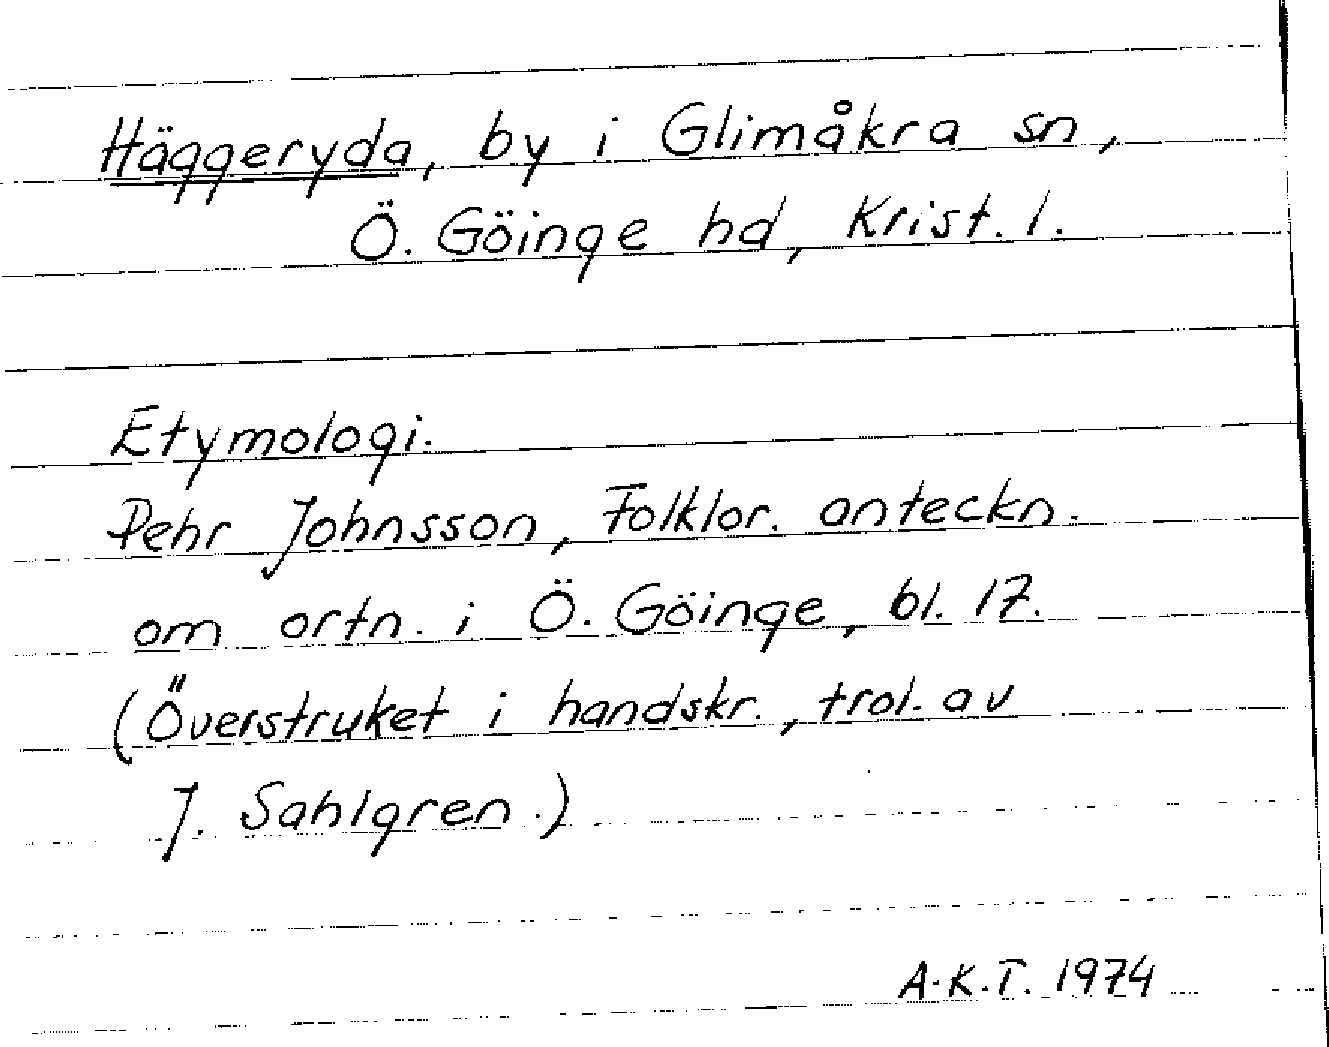 Häggeryda, by i Glimåkra sn,
Ö. Göinge hd, Krist. l.
Etymologi.
Pehr Johnsson, Folklor. anteckn.
om ortn. i Ö. Göinge, bl. 17.
(Överstruket i handskr., trol. av
J. Sahlgren.)
A.K.T. 1974